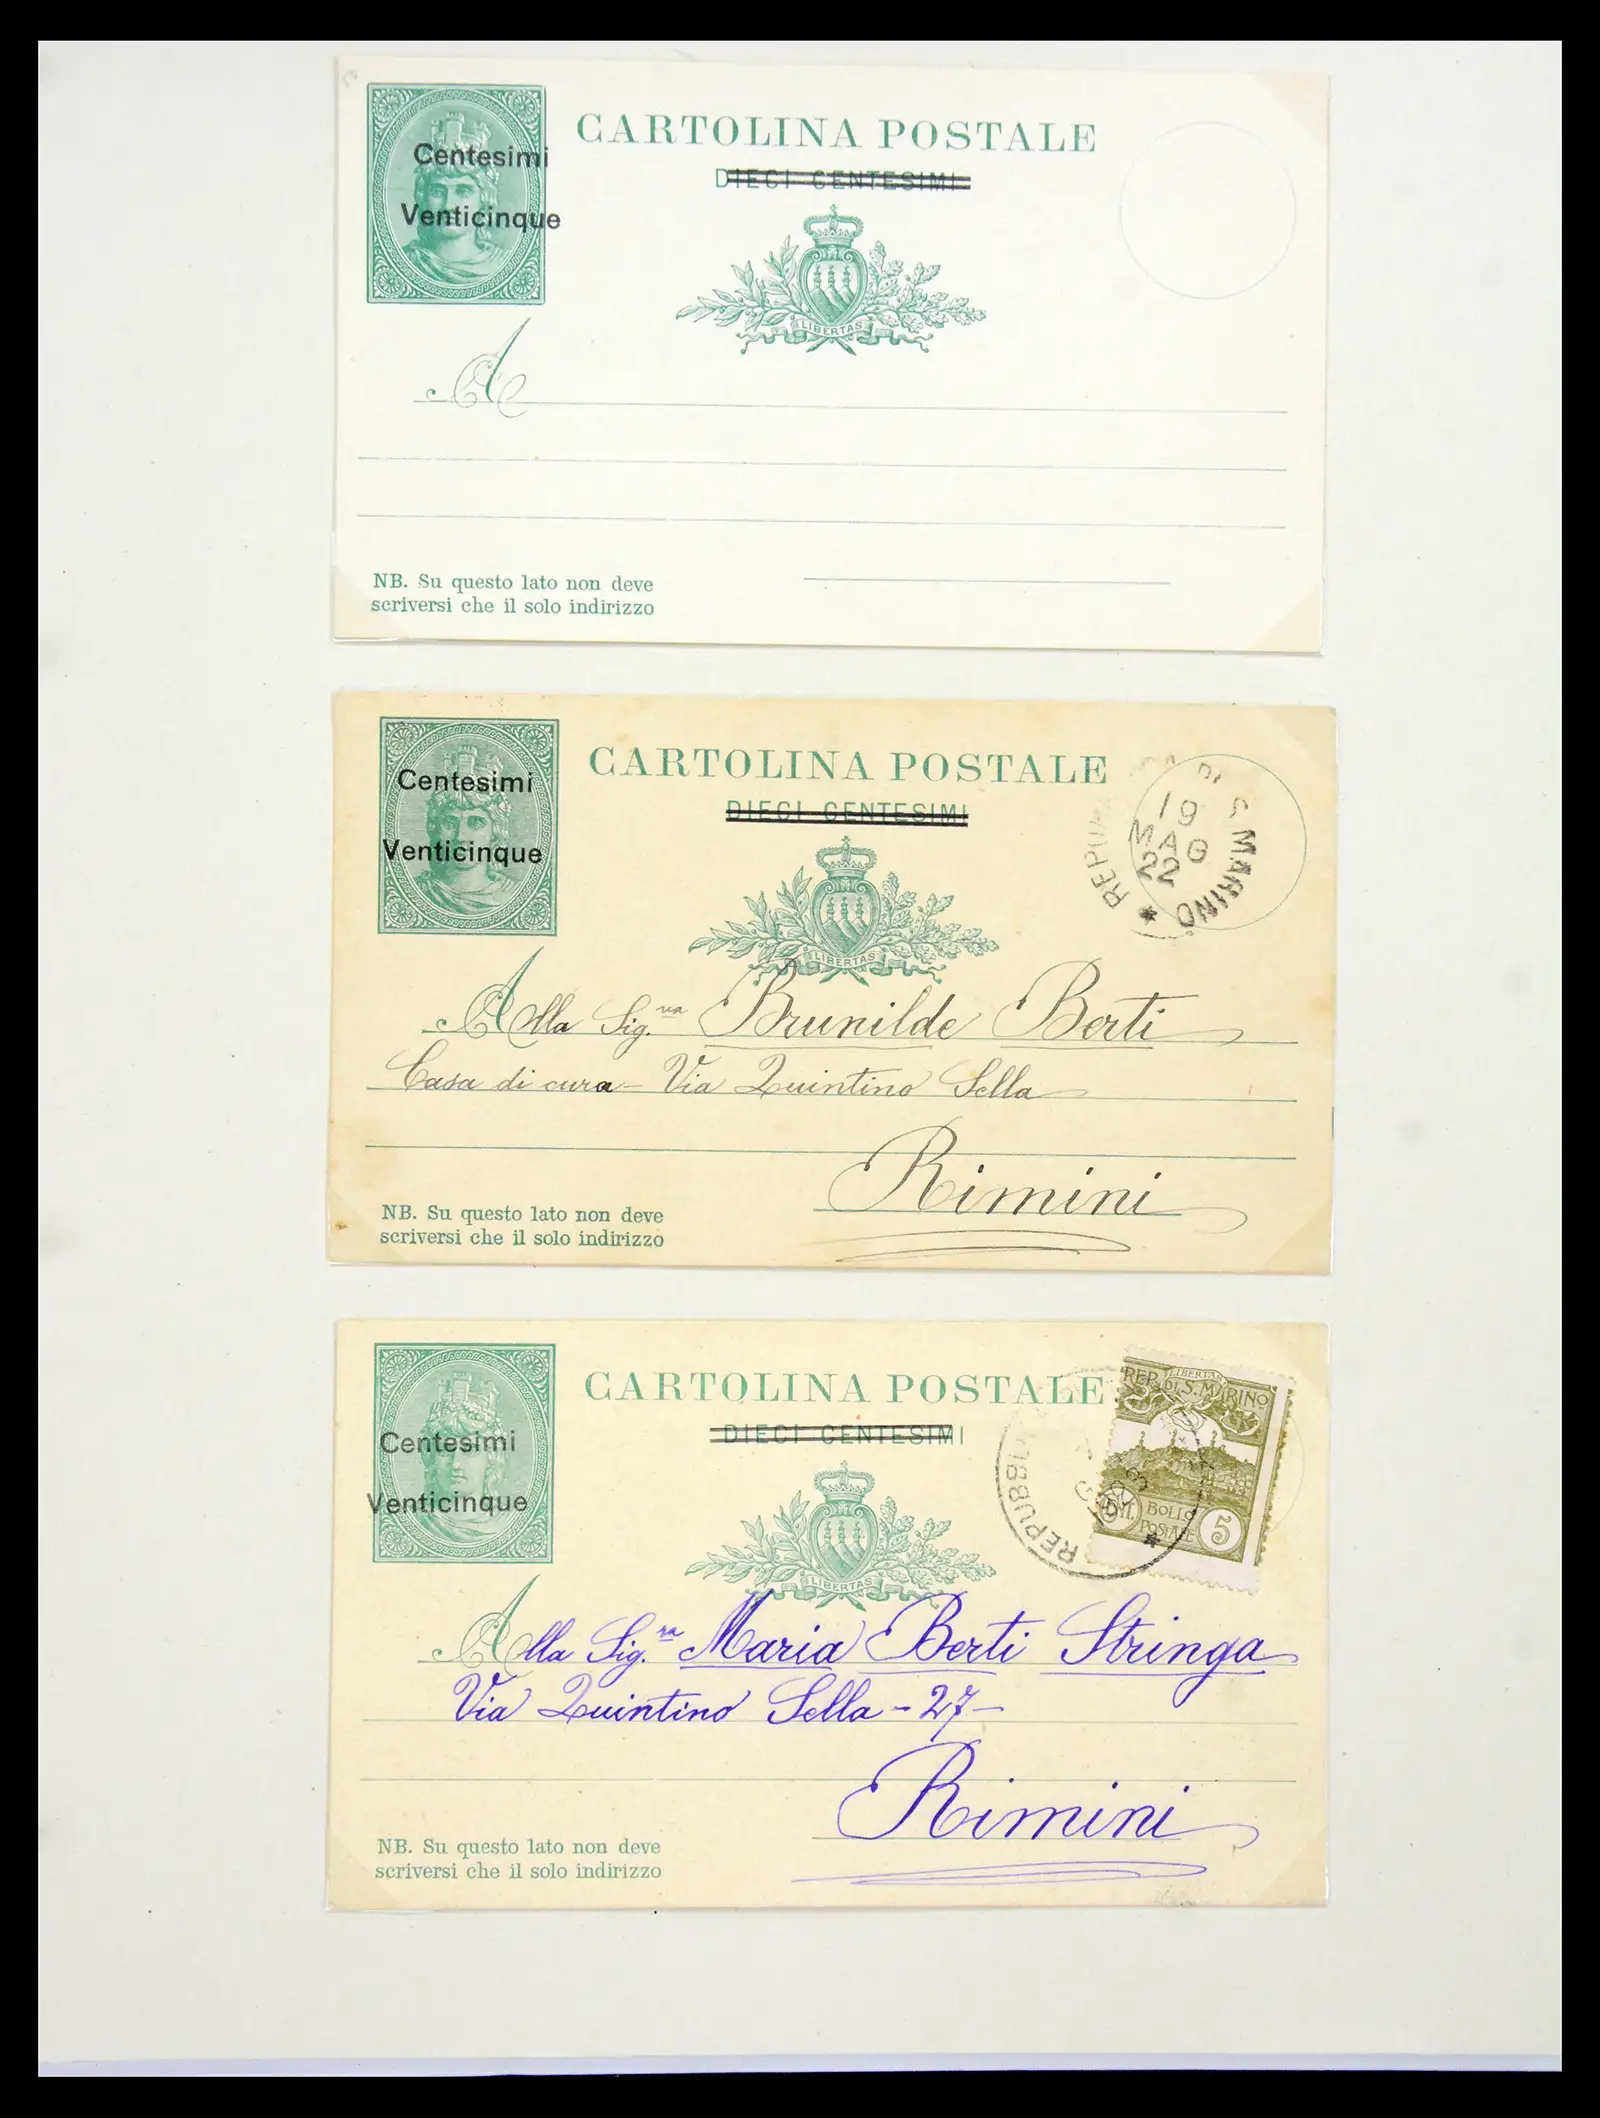 CARTOLINA POSTALE
DIECI CENTESIMI
Centesimi
Venticinque
LIBERTAS
A
NB. Su questo lato non deve
scriversi che il solo indirizzo
CARTOLINA POSTALE
DIECI CENTESIMI
Centesimi
Venticinque
DI S. MARINO
19
MAG
22
LIBERTAS
Alla Sig.ra Brunilde Berti
Casa di cura - Via Quintino Sella
Rimini
NB. Su questo lato non deve
scriversi che il solo indirizzo
CARTOLINA POSTALE
DIECI CENTESIMI
Centesimi
Venticinque
LIBERTAS
REP. DI S. MARINO
BOLLO
POSTALE
5
REPUBBL
LIBERTAS
Alla Sig.ra Maria Berti Stringa
Via Quintino Sella - 27 -
Rimini
NB. Su questo lato non deve
scriversi che il solo indirizzo